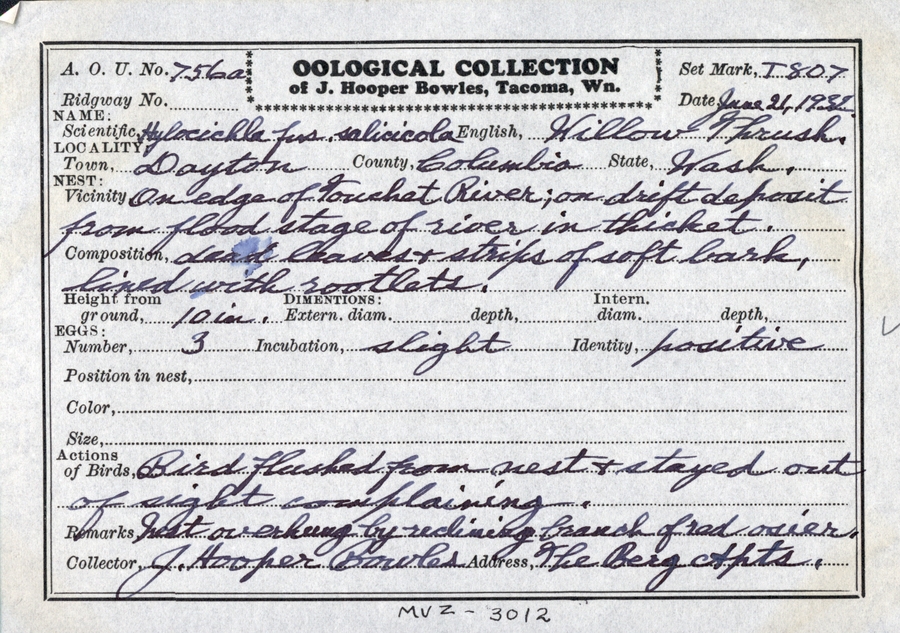 OOLOGICAL COLLECTION
of J. Hooper Bowles, Tacoma, Wn.
A. O. U. No. 756a
Set Mark, T 807
Ridgway No.
Date, June 21, 1932
NAME:
Scientific, Hylocichla fus. salicicola English, Willow Thrush.
LOCALITY:
Town, Dayton County, Columbia State, Wash.
NEST:
Vicinity On edge of Touchet River; on drift deposit
from flood stage of river in thicket.
Composition, dead leaves + strips of soft bark,
lined with rootlets.
Height from ground, 10 in. DIMENTIONS: Extern. diam. depth, Intern. diam. depth,
EGGS:
Number, 3 Incubation, slight Identity, positive
Position in nest,
Color,
Size,
Actions of Birds, Bird flushed from nest + stayed out
of sight complaining.
Remarks Nest overhung by reclining branch of red osier.
Collector, J. Hooper Bowles Address, The Berg Apts.
MVZ - 3012